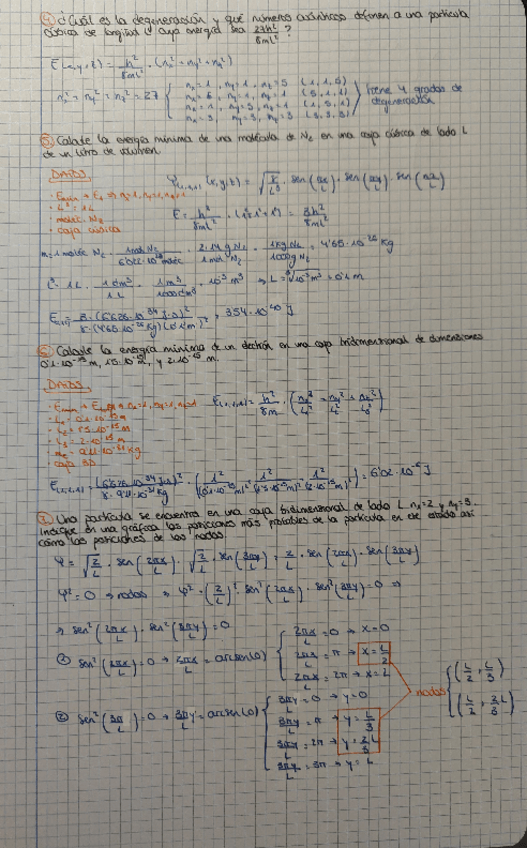 ④ ¿Cuál es la degeneración y qué números cuánticos definen a una partícula
cúbica de longitud L cuya energía sea 27h²/8mL²?
E(x,y,z) = h²/8mL² · (nx² + ny² + nz²)
nx² + ny² + nz² = 27
nx = 1, ny = 1, nz = 5 (1,1,5)
(5,1,1)
nx = 1, ny = 5, nz = 1 (1,5,1)
nx = 3, ny = 3, nz = 3 (3,3,3)
tiene 4 grados de
degeneración
⑤ Calcule la energía mínima de una molécula de N₂ en una caja cúbica de lado L
de un litro de volumen.
DATOS
· L³ = 1L
· molec. N₂
· caja cúbica
Ψ(1,1,1) (x,y,z) = √(8/L³) · sen(πx/L) · sen(πy/L) · sen(πz/L)
E = h²/8mL² · (1²+1²+1²) = 3h²/8mL²
m = 1 molec N₂ · 1mol N₂/6'022·10²³molec · 2·14g N₂/1mol N₂ · 1kg N₂/1000g N₂ = 4'65·10⁻²⁶ kg
L³ = 1L · 1dm³/1L · 1m³/1000dm³ = 10⁻³ m³ → L = ∛10⁻³m³ = 0'1m
E(1,1,1) = 3·(6'626·10⁻³⁴ J·s)²/8·(4'65·10⁻²⁶kg)(0'1m)² = 3'54·10⁻⁴⁰ J
⑥ Calcule la energía mínima de un electrón en una caja tridimensional de dimensiones
0'1·10⁻¹⁵ m, 1'5·10⁻¹⁵, y 2·10⁻¹⁵ m.
DATOS
· L₁ = 0'1·10⁻¹⁵m
· L₂ = 1'5·10⁻¹⁵m
· L₃ = 2·10⁻¹⁵m
· me = 9'11·10⁻³¹kg
· caja 3D
E(1,1,1) = h²/8m · (nx²/L₁² + ny²/L₂² + nz²/L₃²)
E(1,1,1) = (6'626·10⁻³⁴ J·s)²/8·9'11·10⁻³¹kg · (1²/(0'1·10⁻¹⁵m)² + 1²/(1'5·10⁻¹⁵m)² + 1²/(2·10⁻¹⁵m)²) = 6'02·10⁻⁶ J
⑦ Una partícula se encuentra en una caja bidimensional de lado L nx=2 y ny=3.
Indique en una gráfica las posiciones más probables de la partícula en ese estado así
como las posiciones de los nodos
Ψ = √(2/L) · sen(2πx/L) · √(2/L) · sen(3πy/L) = 2/L · sen(2πx/L) · sen(3πy/L)
Ψ² = 0 → nodos → Ψ² = (2/L)² · sen²(2πx/L) · sen²(3πy/L) = 0 ⇒
⇒ sen²(2πx/L) · sen²(3πy/L) = 0
① sen²(2πx/L) = 0 → 2πx/L = arcsen(0)
2πx/L = 0 → x = 0
2πx/L = π → x = L/2
2πx/L = 2π → x = L
② sen²(3πy/L) = 0 → 3πy/L = arcsen(0)
3πy/L = 0 → y = 0
3πy/L = π → y = L/3
3πy/L = 2π → y = 2/3 L
3πy/L = 3π → y = L
nodos
(L/2, L/3)
(L/2, 2L/3)